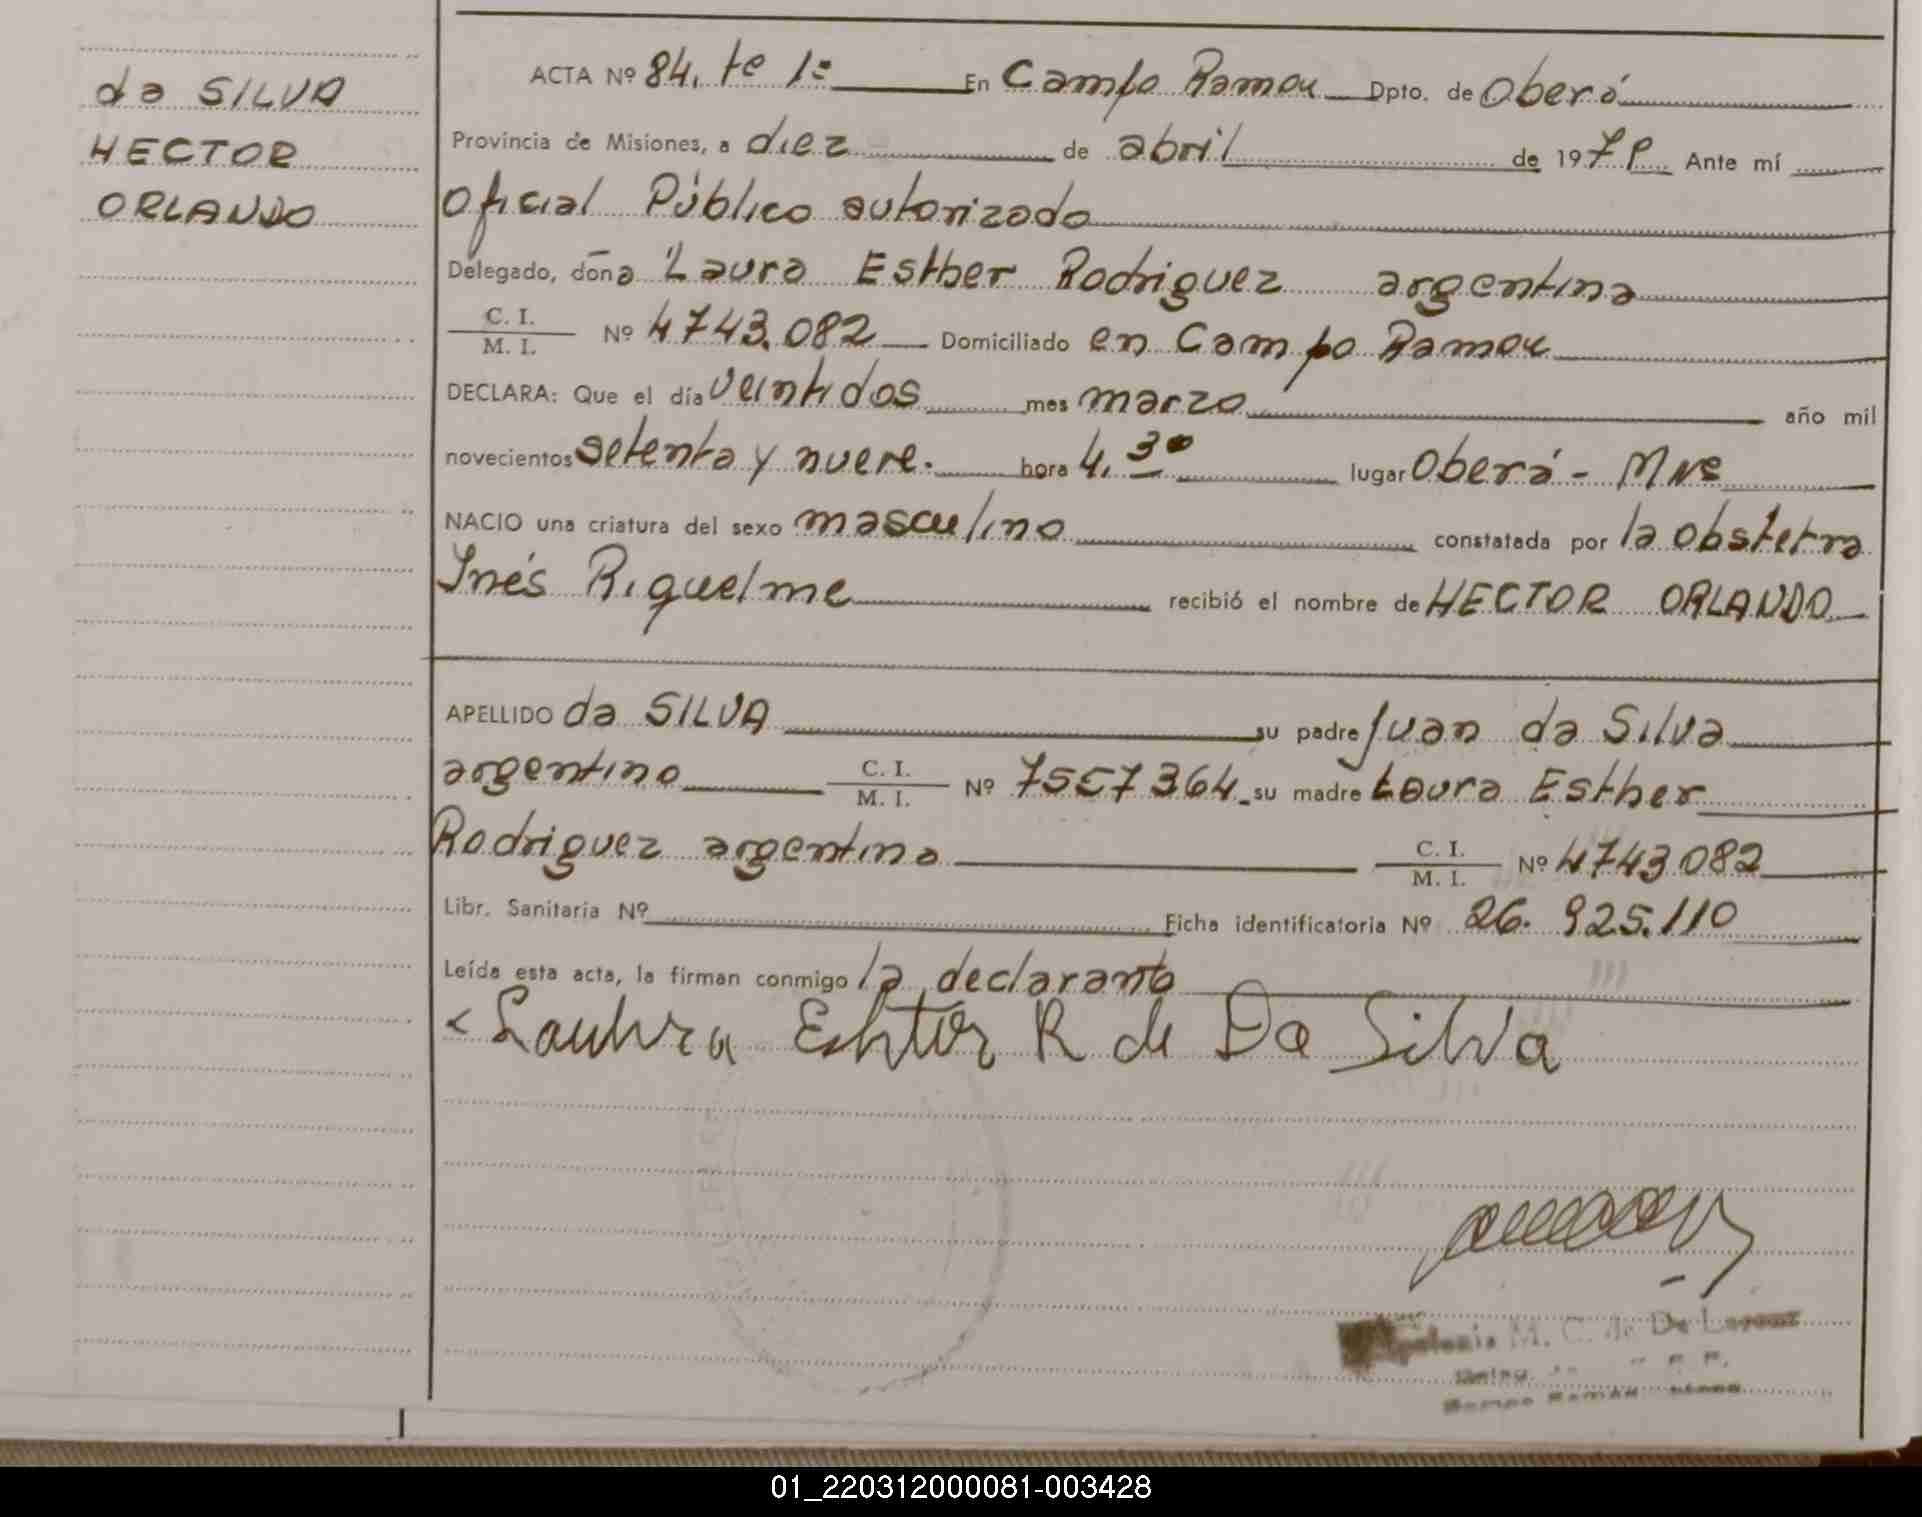 da SILVA
HECTOR
ORLANDO
ACTA Nº 84. tº 1º En Campo Ramon Dpto. de Oberá
Provincia de Misiones, a diez de abril de 1979 Ante mí
Oficial Público autorizado
Delegado, doña Laura Esther Rodriguez argentina
C. I. / M. I. Nº 4743.082 Domiciliado en Campo Ramon
DECLARA: Que el día veintidos mes marzo año mil
novecientos setenta y nueve. hora 4.30 lugar Oberá - Mnes
NACIO una criatura del sexo masculino constatada por la obstetra
Inés Riquelme recibió el nombre de HECTOR ORLANDO
APELLIDO da SILVA su padre Juan da Silva
argentino C. I. / M. I. Nº 7557364 su madre Laura Esther
Rodriguez argentina C. I. / M. I. Nº 4743082
Libr. Sanitaria Nº Ficha identificatoria Nº 26.925.110
Leída esta acta, la firman conmigo la declarante
R de Da Silva
M. C. de De
Campo Ramón
01_220312000081-003428